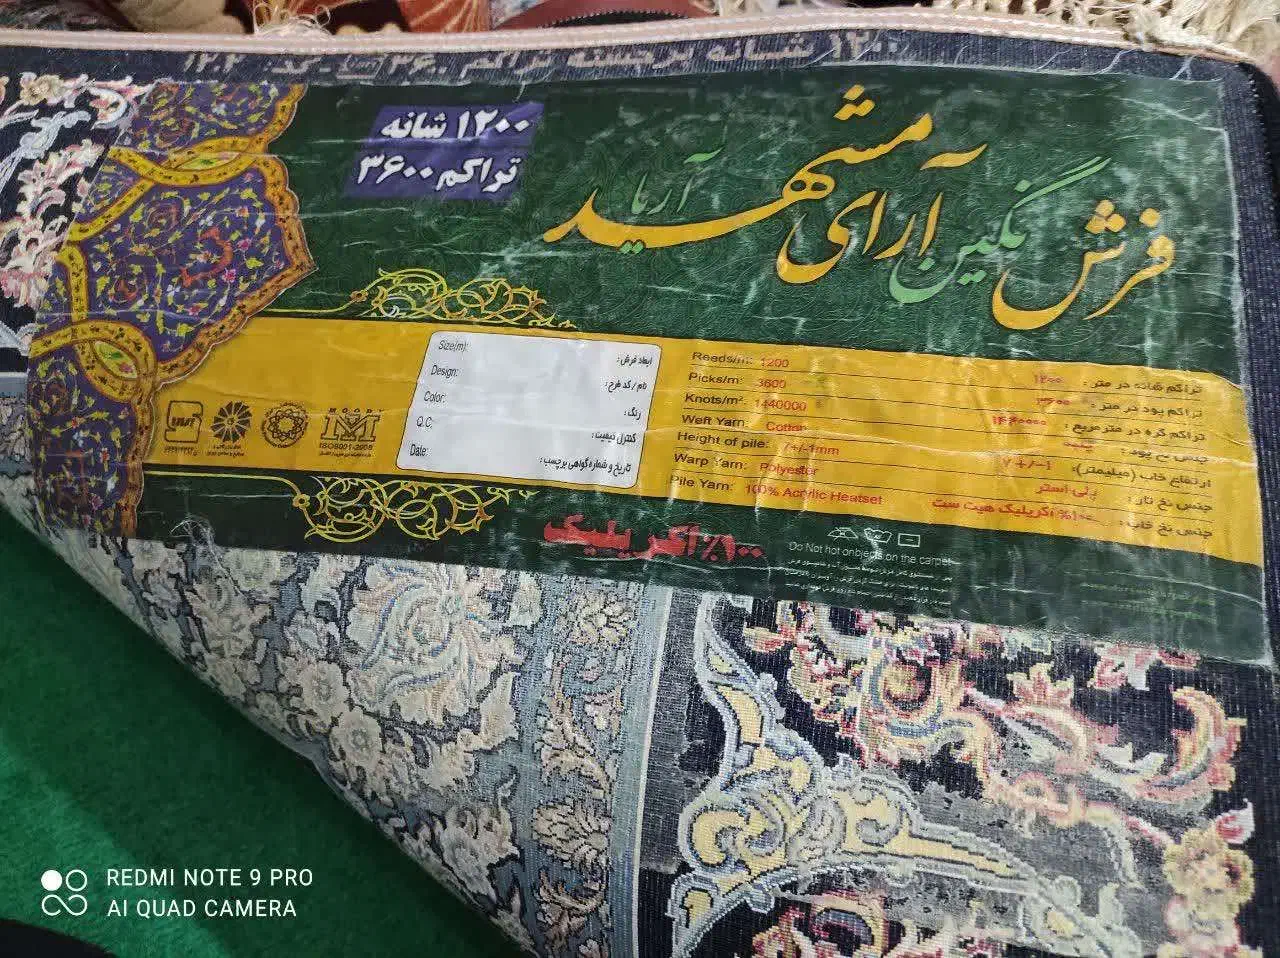 ۱۲۰۰ شانه برجسته تراکم ۳۶۰۰
۱۲۰۰ شانه
تراکم ۳۶۰۰
فرش نگین آرای مشهد
آریا
Size(m):
ابعاد فرش:
Design:
نام / کد طرح:
Color:
رنگ:
Q.C:
کنترل کیفیت:
Date:
تاریخ و شماره گواهی برچسب:
Reeds/m: 1200
۱۲۰۰ تراکم شانه در متر:
Picks/m: 3600
۳۶۰۰ تراکم پود در متر:
Knots/m²: 1440000
تراکم گره در متر مربع:
Weft Yarn: Cotton
جنس نخ پود: پنبه
Height of pile: 7+/-1mm
ارتفاع خاب (میلیمتر): ۷ +/-۱
Warp Yarn: Polyester
جنس نخ تار: پلی استر
Pile Yarn: 100% Acrylic Heatset
جنس نخ خاب: ۱۰۰% اکریلیک هیت ست
ISO9001-2008
۱۰۰٪ اکریلیک
Do Not hot onbjects on the carpet
REDMI NOTE 9 PRO
AI QUAD CAMERA